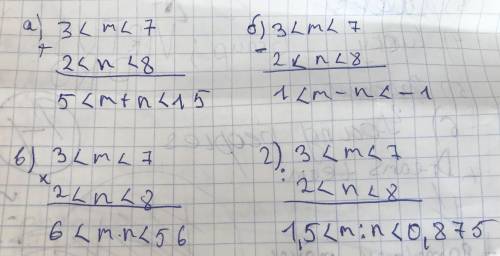 а) 3 < m < 7
+
2 < n < 8
5 < m + n < 15
б) 3 < m < 7
-
2 < n < 8
1 < m - n < - 1
в) 3 < m < 7
×
2 < n < 8
6 < m · n < 56
г) 3 < m < 7
:
2 < n < 8
1,5 < m : n < 0,875